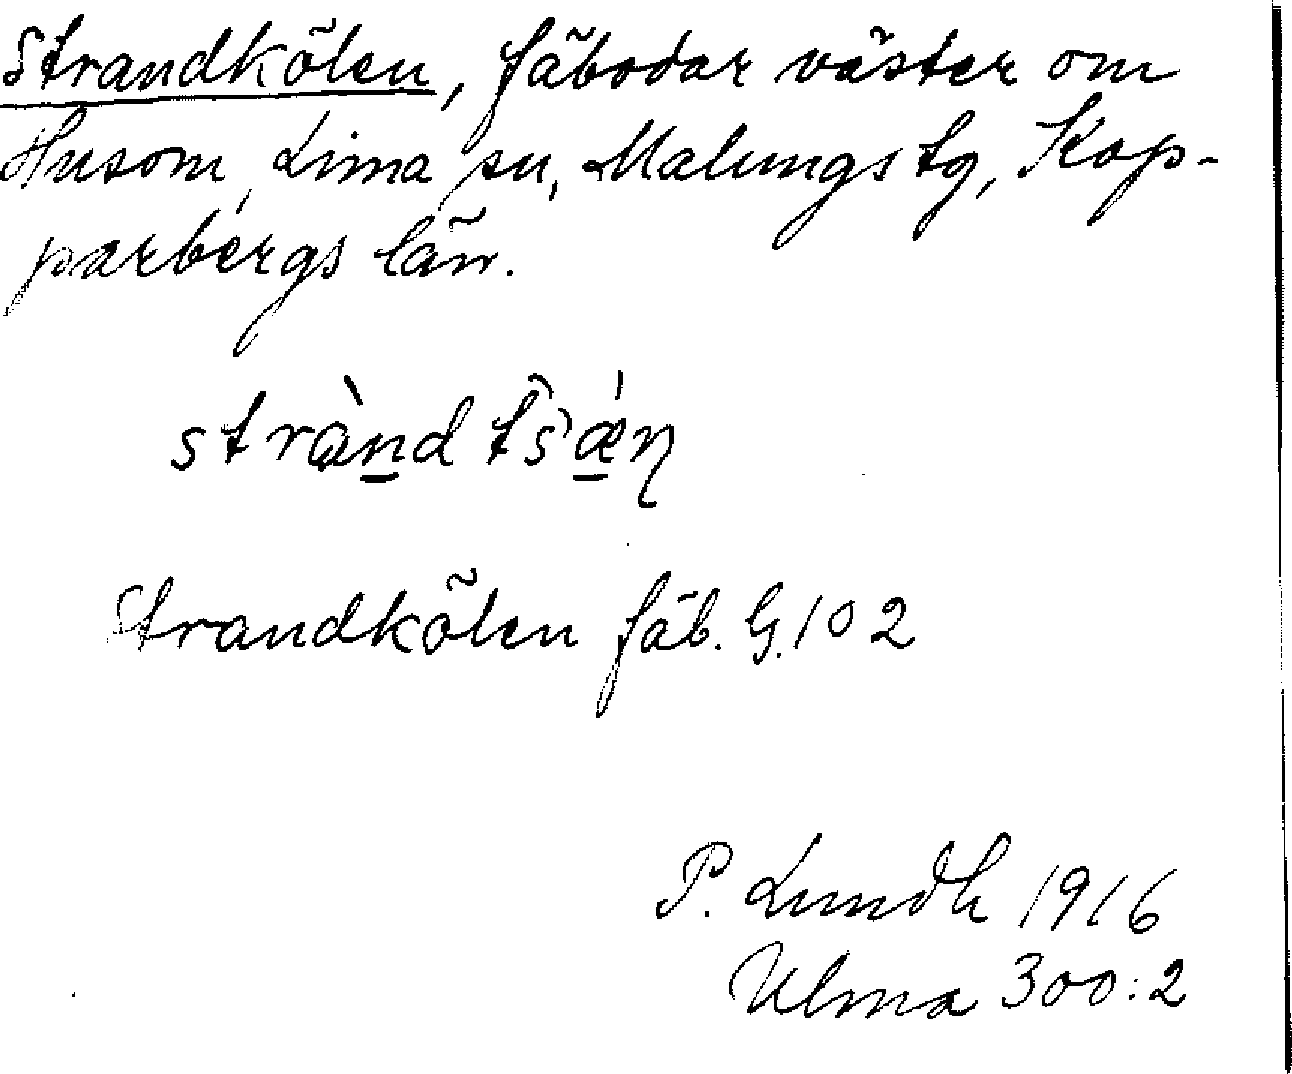 Strandkölen, fäbodar väster om
Husom, Lima sn, Malungs tg, Kop-
parbergs län.
stràn̠d tš ǽ̠ŋ
Strandkölen fäb. G. 102
P. Lundh 1916
Ulma 300:2